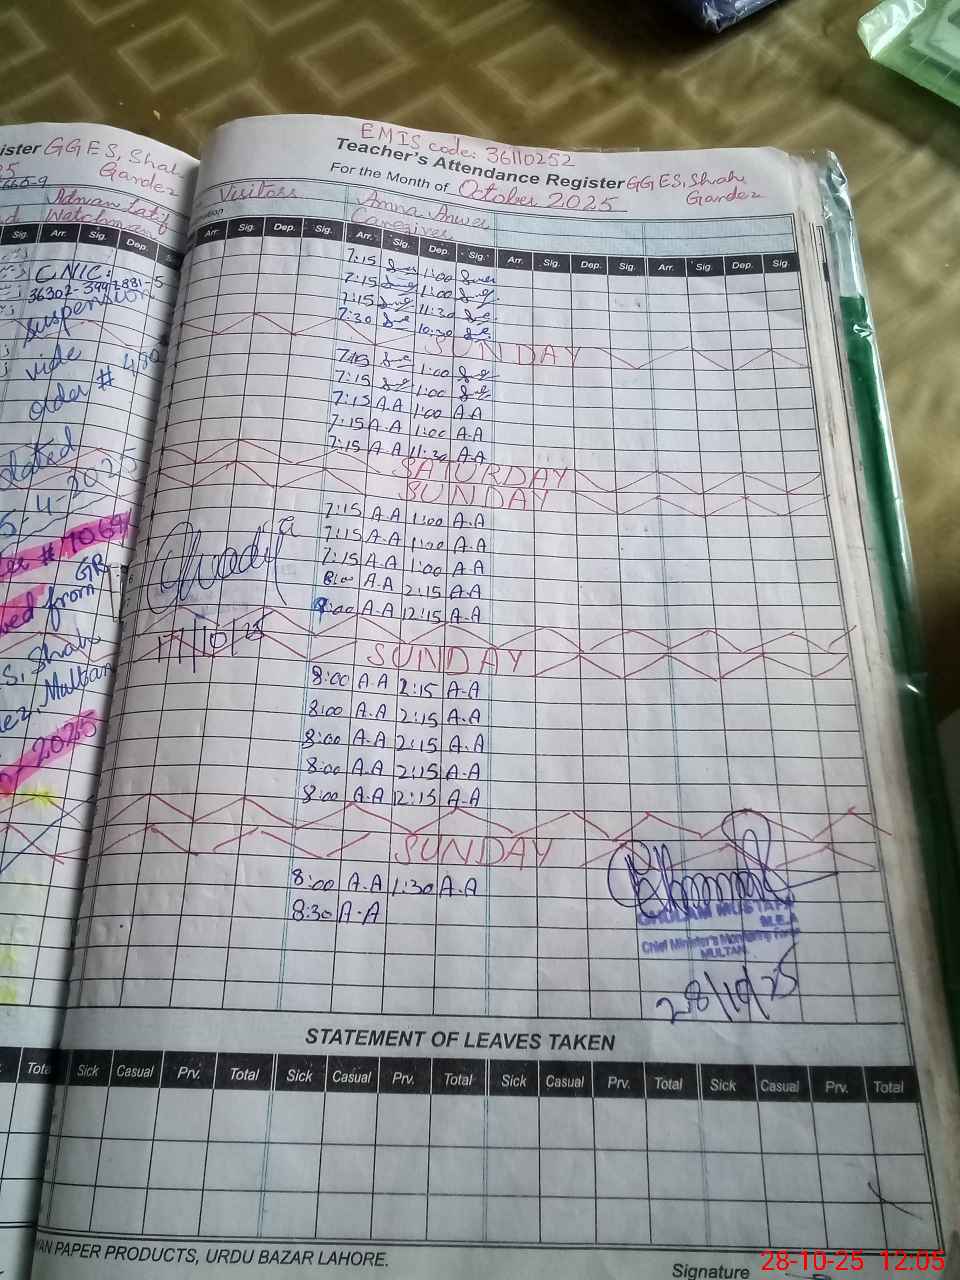 EMIS code: 36110252
Teacher's Attendance Register GGES, Shah Gardez
For the Month of October 2025
ister GGES, Shah
Gardez
Adnan Latif
Watchman
Sig. Arr. Sig. Dep.
CNIC:
suspension
vide
order # 480
dated
2025
from
S, Shah
Multan
2025
Visitors
Amna Anwer
Caregiver
Arr. Sig. Dep. Sig. Arr. Sig. Dep. Sig. Arr. Sig. Dep. Sig. Arr. Sig. Dep. Sig.
7:15 1:00
7:15 1:00
7:15 11:30
7:30 10:30
SUNDAY
7:15 1:00
7:15 1:00
7:15 A.A 1:00 A.A
7:15 A.A 1:00 A.A
7:15 A.A 11:30 A.A
SATURDAY
SUNDAY
7:15 A.A 1:00 A.A
7:15 A.A 1:00 A.A
7:15 A.A 1:00 A.A
8:00 A.A 2:15 A.A
8:00 A.A 12:15 A.A
17/10/25
SUNDAY
8:00 A.A 2:15 A.A
8:00 A.A 2:15 A.A
8:00 A.A 2:15 A.A
8:00 A.A 2:15 A.A
8:00 A.A 12:15 A.A
SUNDAY
8:00 A.A 1:30 A.A
8:30 A.A
GHULAM MUSTAFA
M.E.A
Chief Minister's Monitoring Force
MULTAN.
28/10/25
STATEMENT OF LEAVES TAKEN
Total Sick Casual Prv. Total Sick Casual Prv. Total Sick Casual Prv. Total Sick Casual Prv. Total
PAPER PRODUCTS, URDU BAZAR LAHORE.
Signature
28-10-25 12:05